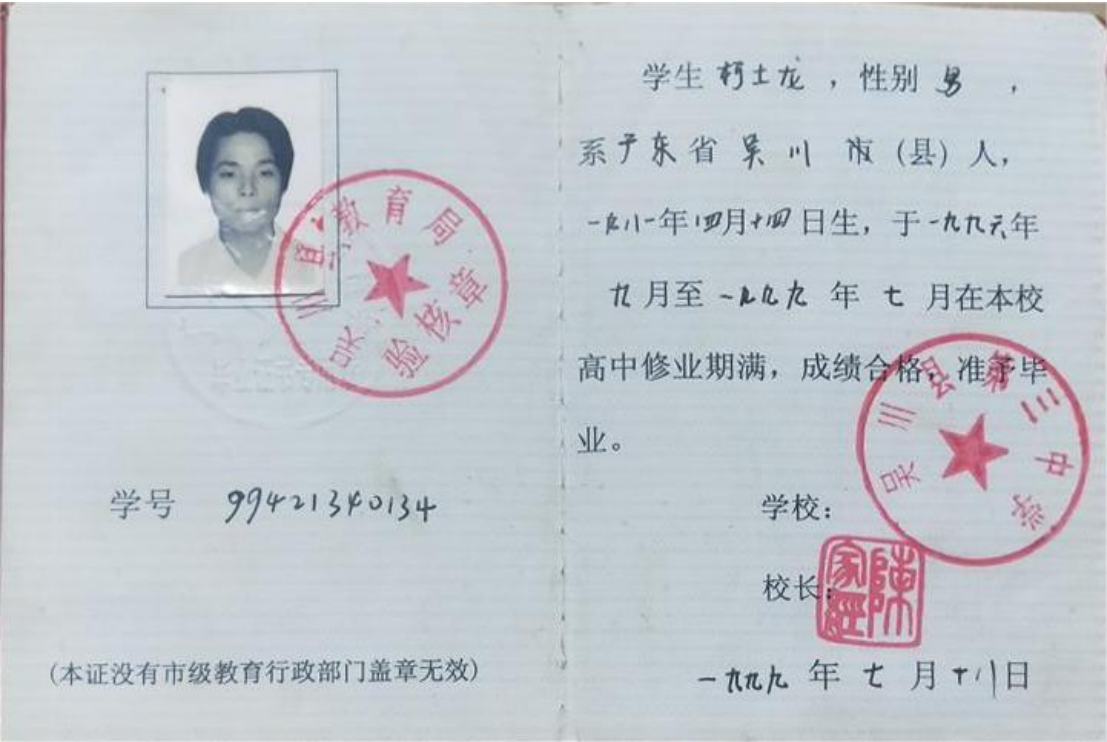 学号 99421340134
(本证没有市级教育行政部门盖章无效)
吴川县教育局
验核章
学生 柯土龙 ，性别 男 ，
系广东省 吴川 市 (县) 人，
一九八一年四月十四日生，于一九九六年
九月至一九九九年七月在本校
高中修业期满，成绩合格，准予毕
业。
学校：
吴川县第三中学
校长：
陳家
一九九九年七月十八日